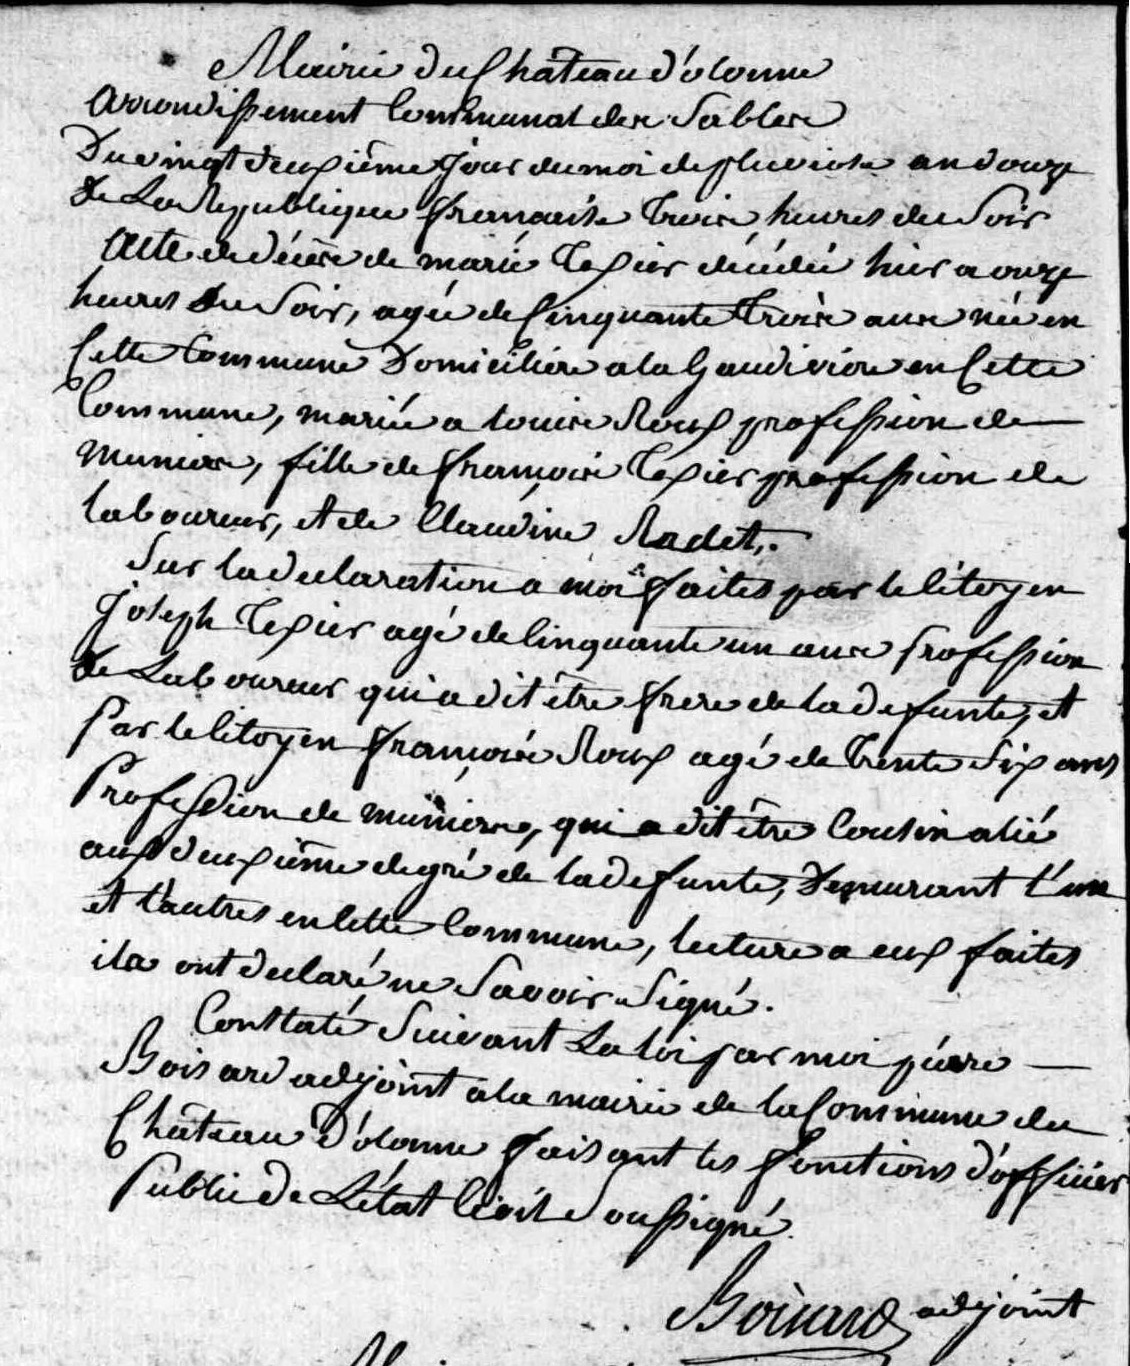 Mairie du Château d'olonne
arrondissement Communal des Sables
Du vingt deuxième jour du moi de pluviose an douze
De La Republique française Trois heures du Soir
Acte de décès de marie Texier décédée hier a onze
heures du Soir, agée de Cinquante Trois ans née en
Cette Commune Domiciliée a la Gaudivière en Cette
Commune, mariée a Louis Roux profession de
Munier, fille de françois Texier profession de
laboureur, et de Claudine Radet.
Sur la declaration a moi faites par le Citoyen
Joseph Texier agé de Cinquante un ans profession
de Laboureur qui a dit être frere de la defunte, et
Par le Citoyen françois Roux agé de Trente Six ans
Profession de munier, qui a dit être Cousin alié
aux deuxième degré de la defunte, Demurant l'un
et l'autres en Cette Commune, lecture a eux faites
ils ont declaré ne Savoir Signé.
Constaté Suivant La loi par moi pierre
Boisard adjoint a la mairie de la Commune du
Château D'olonne faisant les fonctions d'officier
Public de L'état Civil Soussigné.
Boisard adjoint